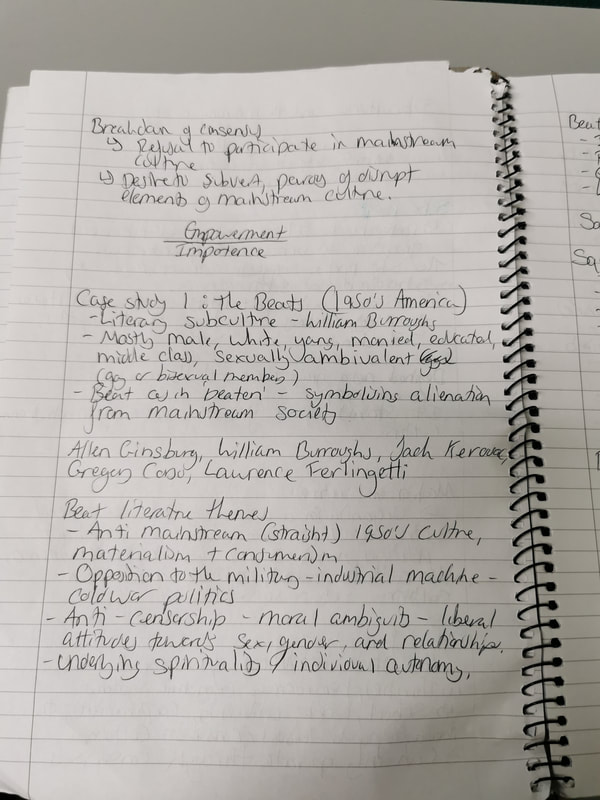 Breakdown of consensus
↳ Refusal to participate in mainstream
culture
↳ Desire to subvert, parody of disrupt
elements of mainstream culture.
Empowerment
Impotence
Case study 1 : the Beats (1950's America)
- Literary subculture - William Burroughs
- Mostly male, white, young, monied, educated,
middle class, sexually ambivalent
(gay or bisexual members)
- 'Beat' as in 'beaten' - symbolising alienation
from mainstream society
Allen Ginsburg, William Burroughs, Jack Kerouac,
Gregory Corso, Laurence Ferlingetti
Beat literature themes
- Anti mainstream (straight) 1950's culture,
materialism + consumerism
- Opposition to the military-industrial machine -
cold war politics
- Anti - censorship - moral ambiguity - liberal
attitudes towards sex, gender, and relationships.
- Underlying spirituality / individual autonomy.
Beat